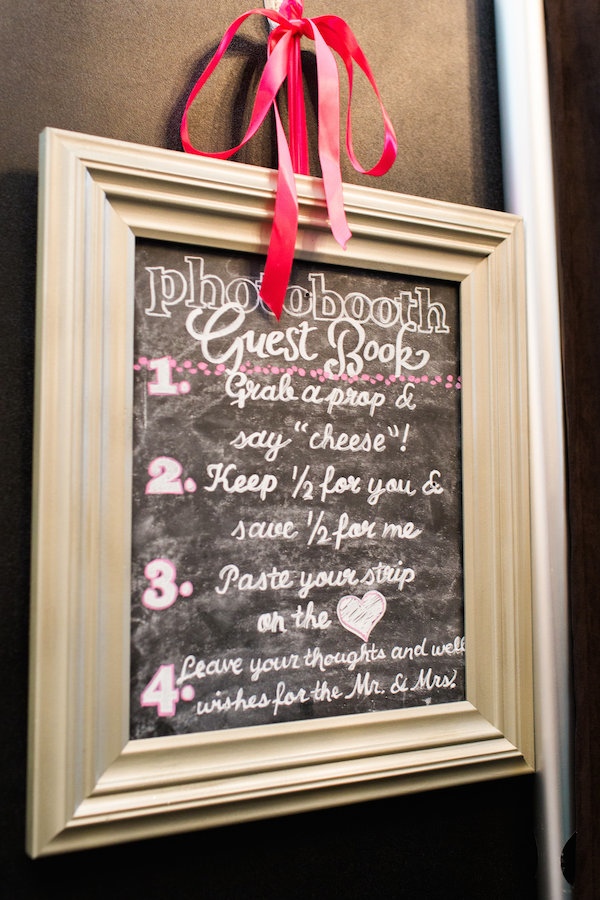 photobooth
Guest Book
1. Grab a prop &
say "cheese"!
2. Keep 1/2 for you &
save 1/2 for me
3. Paste your strip
on the
4. Leave your thoughts and well
wishes for the Mr. & Mrs.!